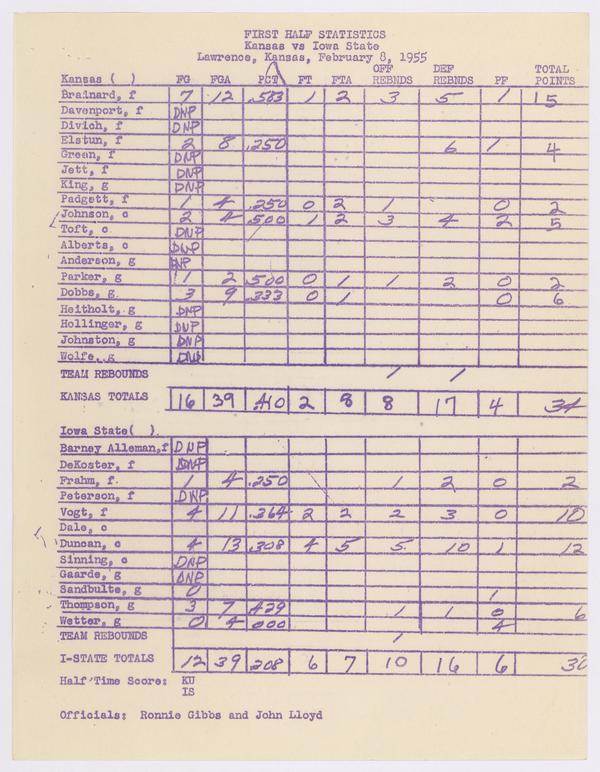 FIRST HALF STATISTICS
Kansas vs Iowa State
Lawrence, Kansas, February 8, 1955
Kansas ( ) FG FGA PCT FT FTA OFF REBNDS DEF REBNDS PF TOTAL POINTS
Brainard, f 7 12 .583 1 2 3 5 1 15
Davenport, f DNP
Divich, f DNP
Elstun, f 2 8 .250 6 1 4
Green, f DNP
Jett, f DNP
King, g DNP
Padgett, f 1 4 .250 0 2 1 0 2
Johnson, c 2 4 .500 1 2 3 4 2 5
Toft, c DNP
Alberts, c DNP
Anderson, g DNP
Parker, g 1 2 .500 0 1 1 2 0 2
Dobbs, g 3 9 .333 0 1 0 6
Heitholt, g DNP
Hollinger, g DNP
Johnston, g DNP
Wolfe, g DNP
TEAM REBOUNDS 1 1
KANSAS TOTALS 16 39 .410 2 8 8 17 4 34
Iowa State( )
Barney Alleman,f DNP
DeKoster, f DNP
Frahm, f 1 4 .250 1 2 0 2
Peterson, f DNP
Vogt, f 4 11 .364 2 2 2 3 0 10
Dale, c
Duncan, c 4 13 .308 4 5 5 10 1 12
Sinning, c DNP
Gaarde, g DNP
Sandbulte, g 0 1
Thompson, g 3 7 .429 1 1 0 6
Wetter, g 0 4 000 4
TEAM REBOUNDS 1
I-STATE TOTALS 12 39 .208 6 7 10 16 6 30
Half Time Score: KU
IS
Officials: Ronnie Gibbs and John Lloyd